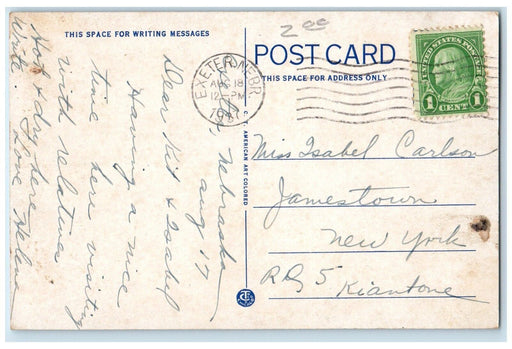 THIS SPACE FOR WRITING MESSAGES
Nebraska
Aug 17
Dear Kit & Isabel
Having a nice
time here visiting
with relatives
Hot & dry here
Write. Love Helena
C. T. AMERICAN ART COLORED
2 00
POST CARD
THIS SPACE FOR ADDRESS ONLY
EXETER, NEBR.
AUG 18
12 PM
UNITED STATES POSTAGE
1 1
CENT
Miss Isabel Carlson
Jamestown
New York
RD 5
Kiantone